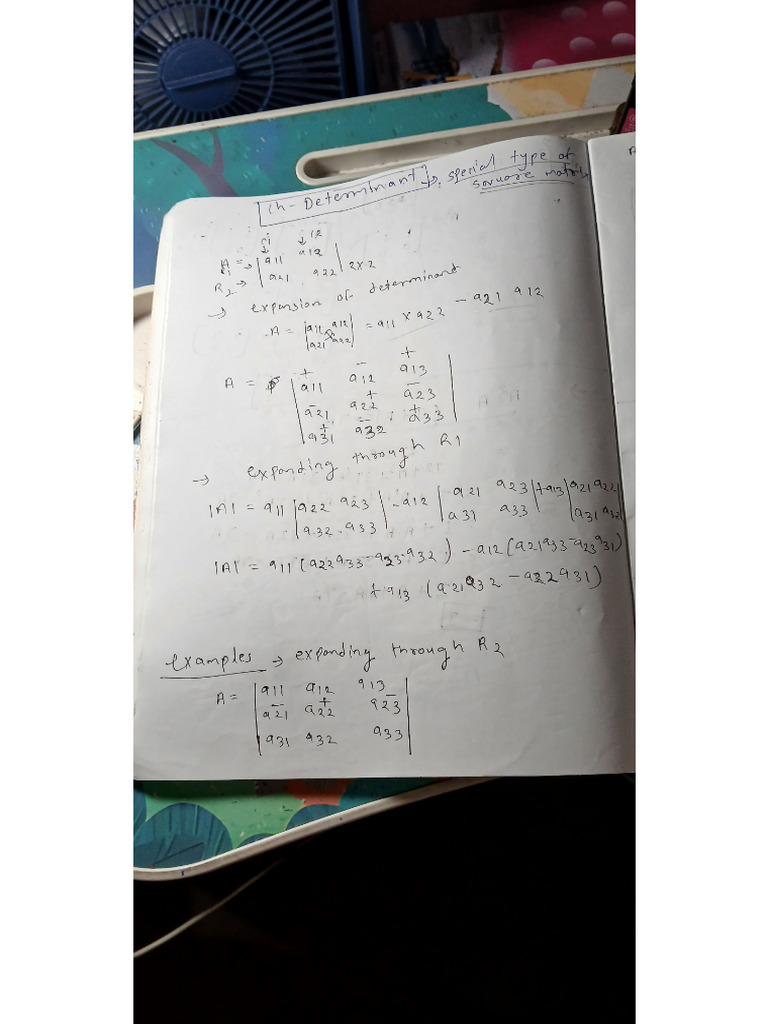 Ch- Determinant → special type of
square matrix
A = R1 → | a11 a12
R2 → | a21 a22 | 2×2
→ expansion of determinant
A = | a11 a12 | = a11 × a22 - a21 a12
| a21 a22 |
+ - +
A = | a11 a12 a13 |
- + -
| a21 a22 a23 |
+ - +
| a31 a32 a33 |
→ expanding through R1
|A| = a11 | a22 a23 | - a12 | a21 a23 | + a13 | a21 a22 |
| a32 a33 | | a31 a33 | | a31 a32 |
|A| = a11 (a22 a33 - a23 a32) - a12 (a21 a33 - a23 a31)
+ a13 (a21 a32 - a22 a31)
Examples → expanding through R2
A = | a11 a12 a13 |
- + -
| a21 a22 a23 |
| a31 a32 a33 |